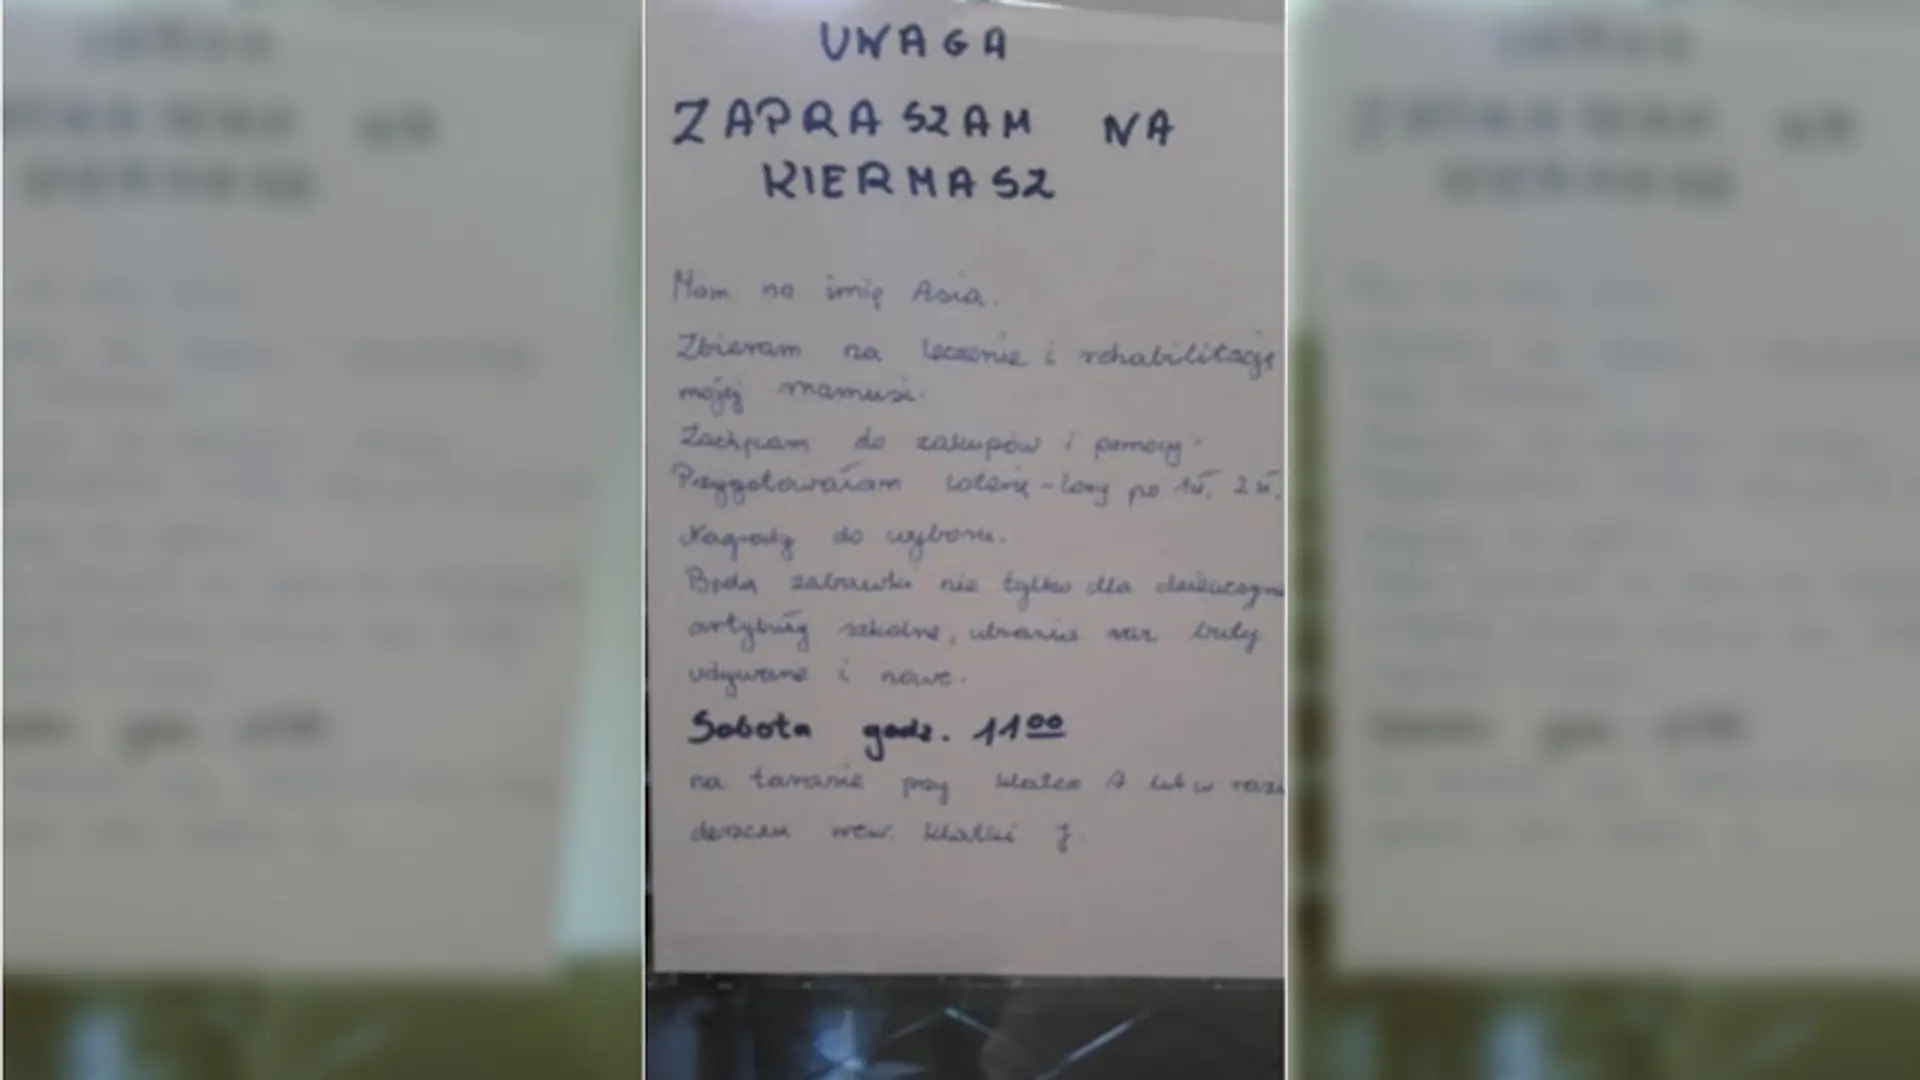 UWAGA
ZAPRASZAM NA
KIERMASZ
Mam na imię Asia.
Zbieram na leczenie i rehabilitację
mojej mamusi.
Zachęcam do zakupów i pomocy.
Przygotowałam loterię - losy po 1zł, 2zł.
Nagrody do wyboru.
Będą zabawki nie tylko dla dziewczyne
artykuły szkolne, ubrania oraz buty
używane i nowe.
Sobota godz. 11 00
na tarasie przy klatce A lub w razi
deszczu wew. klatki J.